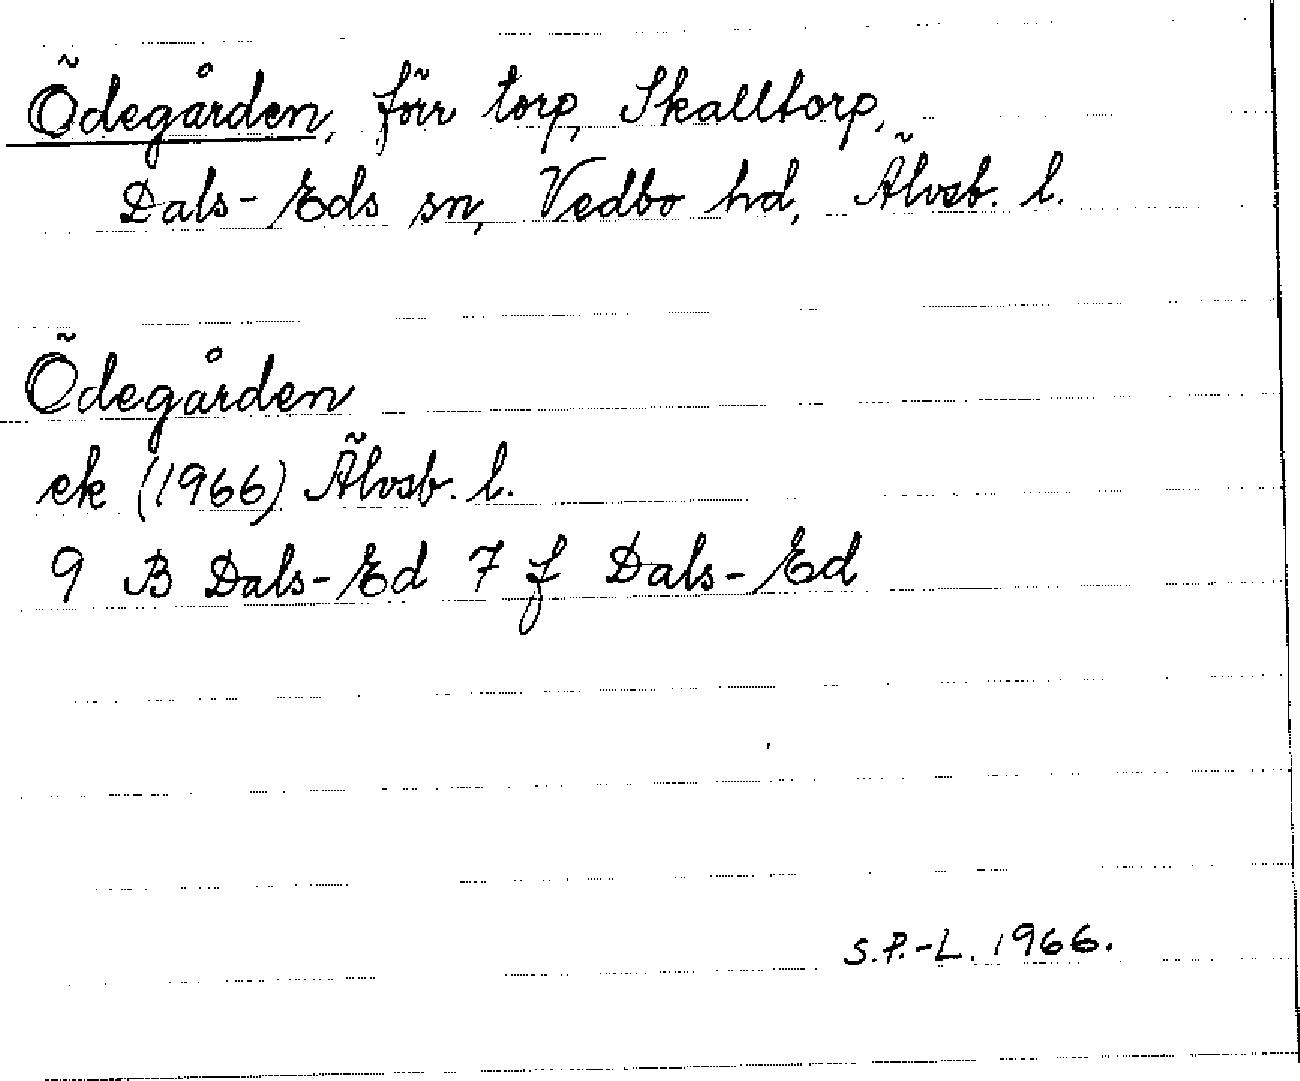 Ödegården, förr torp, Skalltorp,
Dals-Eds sn, Vedbo hd, Älvsb. l.
Ödegården
ek (1966) Älvsb. l.
9 B Dals-Ed 7 f Dals-Ed
S.P.-L. 1966.